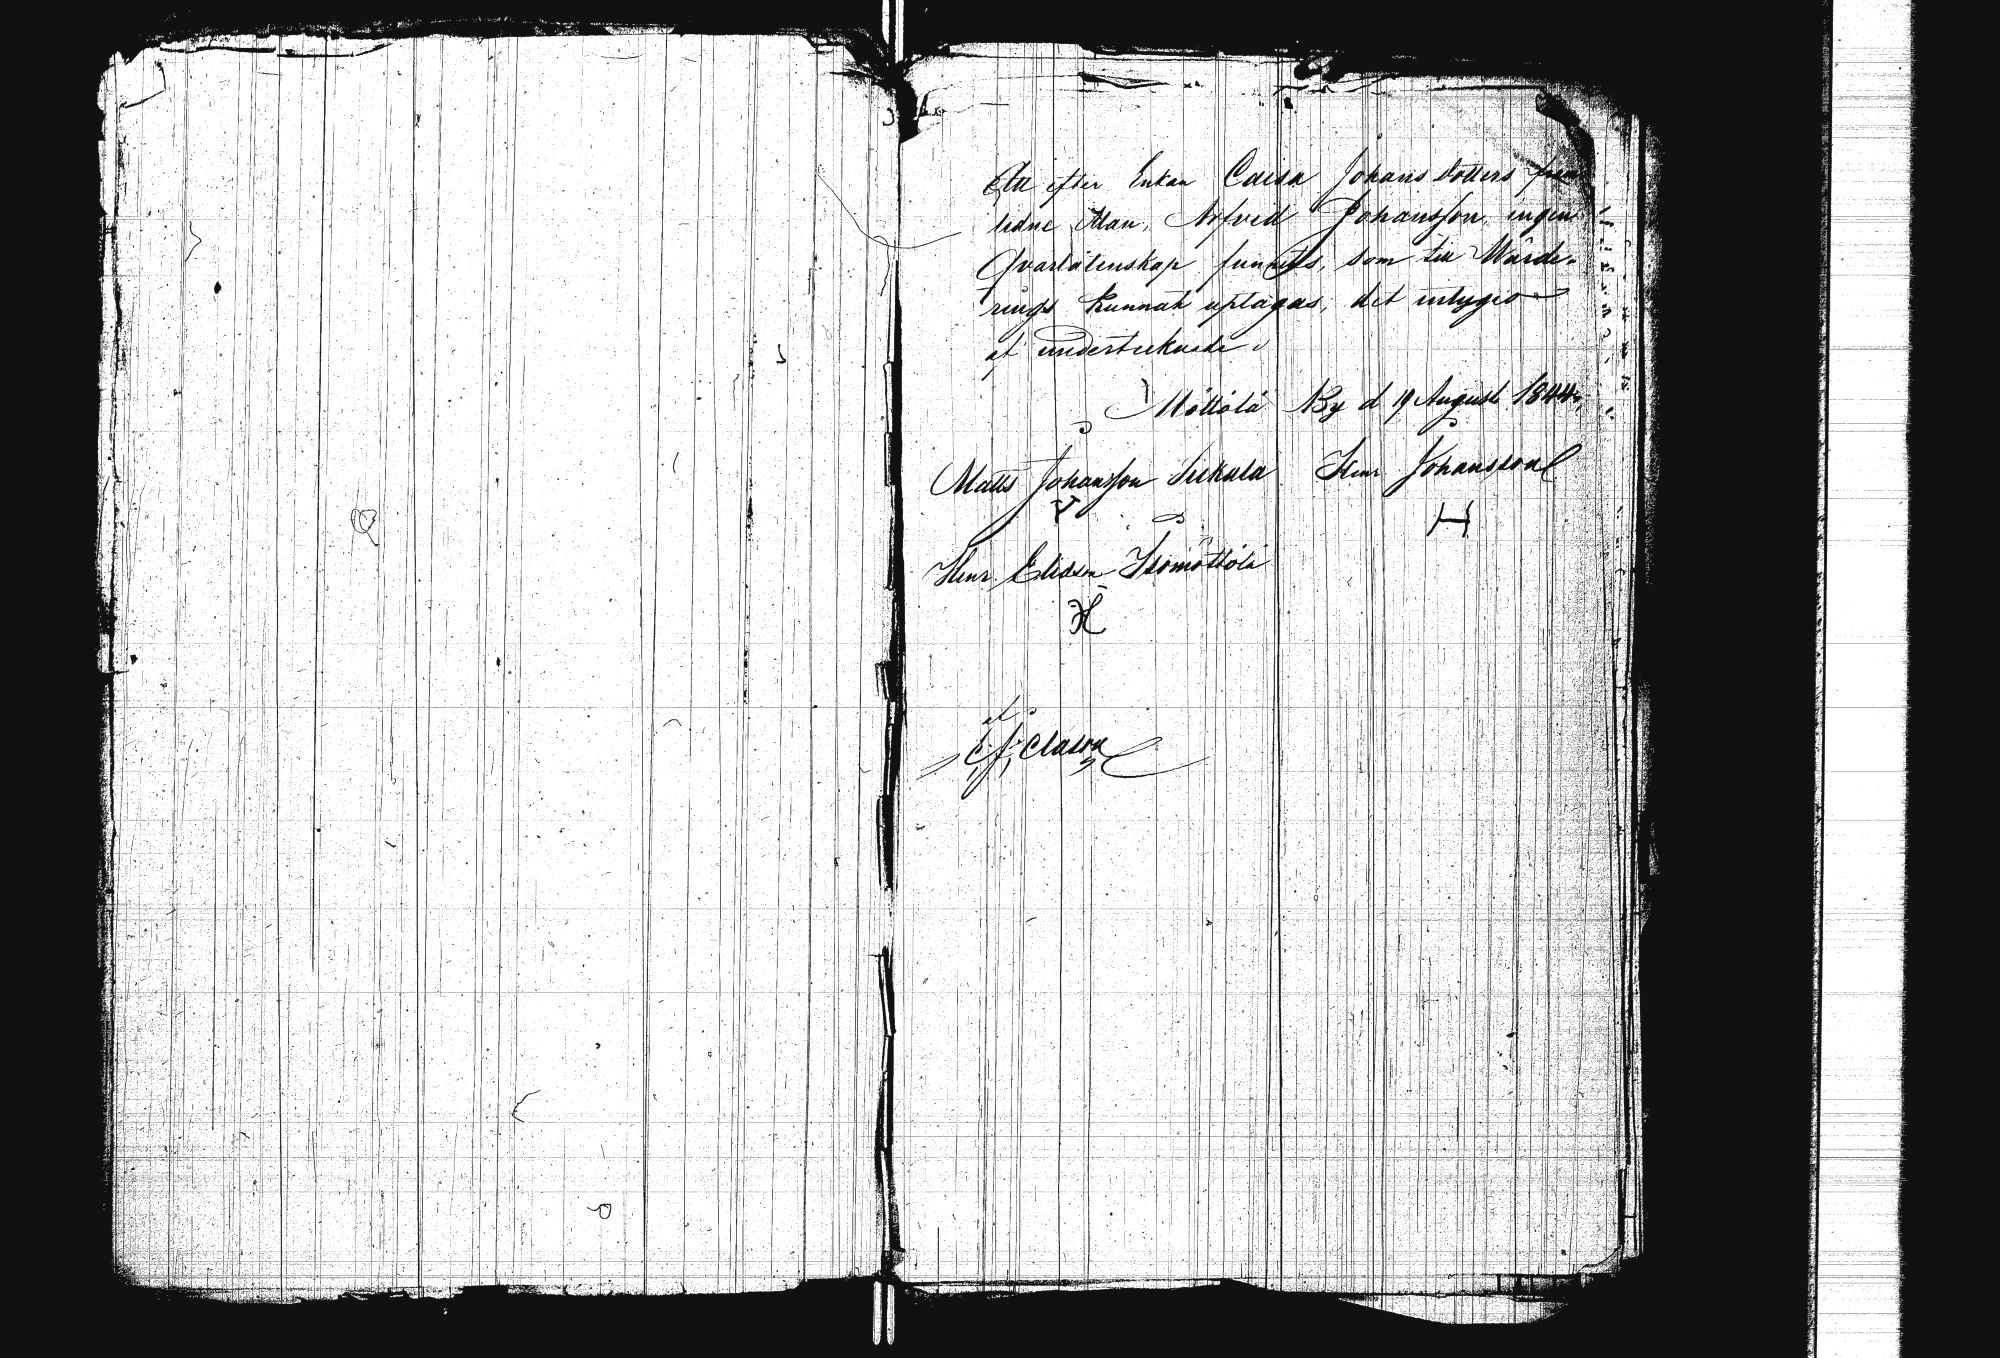 Att efter Enkan Caisa Johans dotters fram
lidne Man, Arfved Johansson, ingen
Qvarlåtenskap funnits, som till Wärde-
rings kunnat uptagas, det intygis
af undertecknade.
Möttölä By d 19 August 1844.
Matts Johansson Seikula Henr Johansson
H
Henr Elidson Isomöttölä
af
C. J. Clason